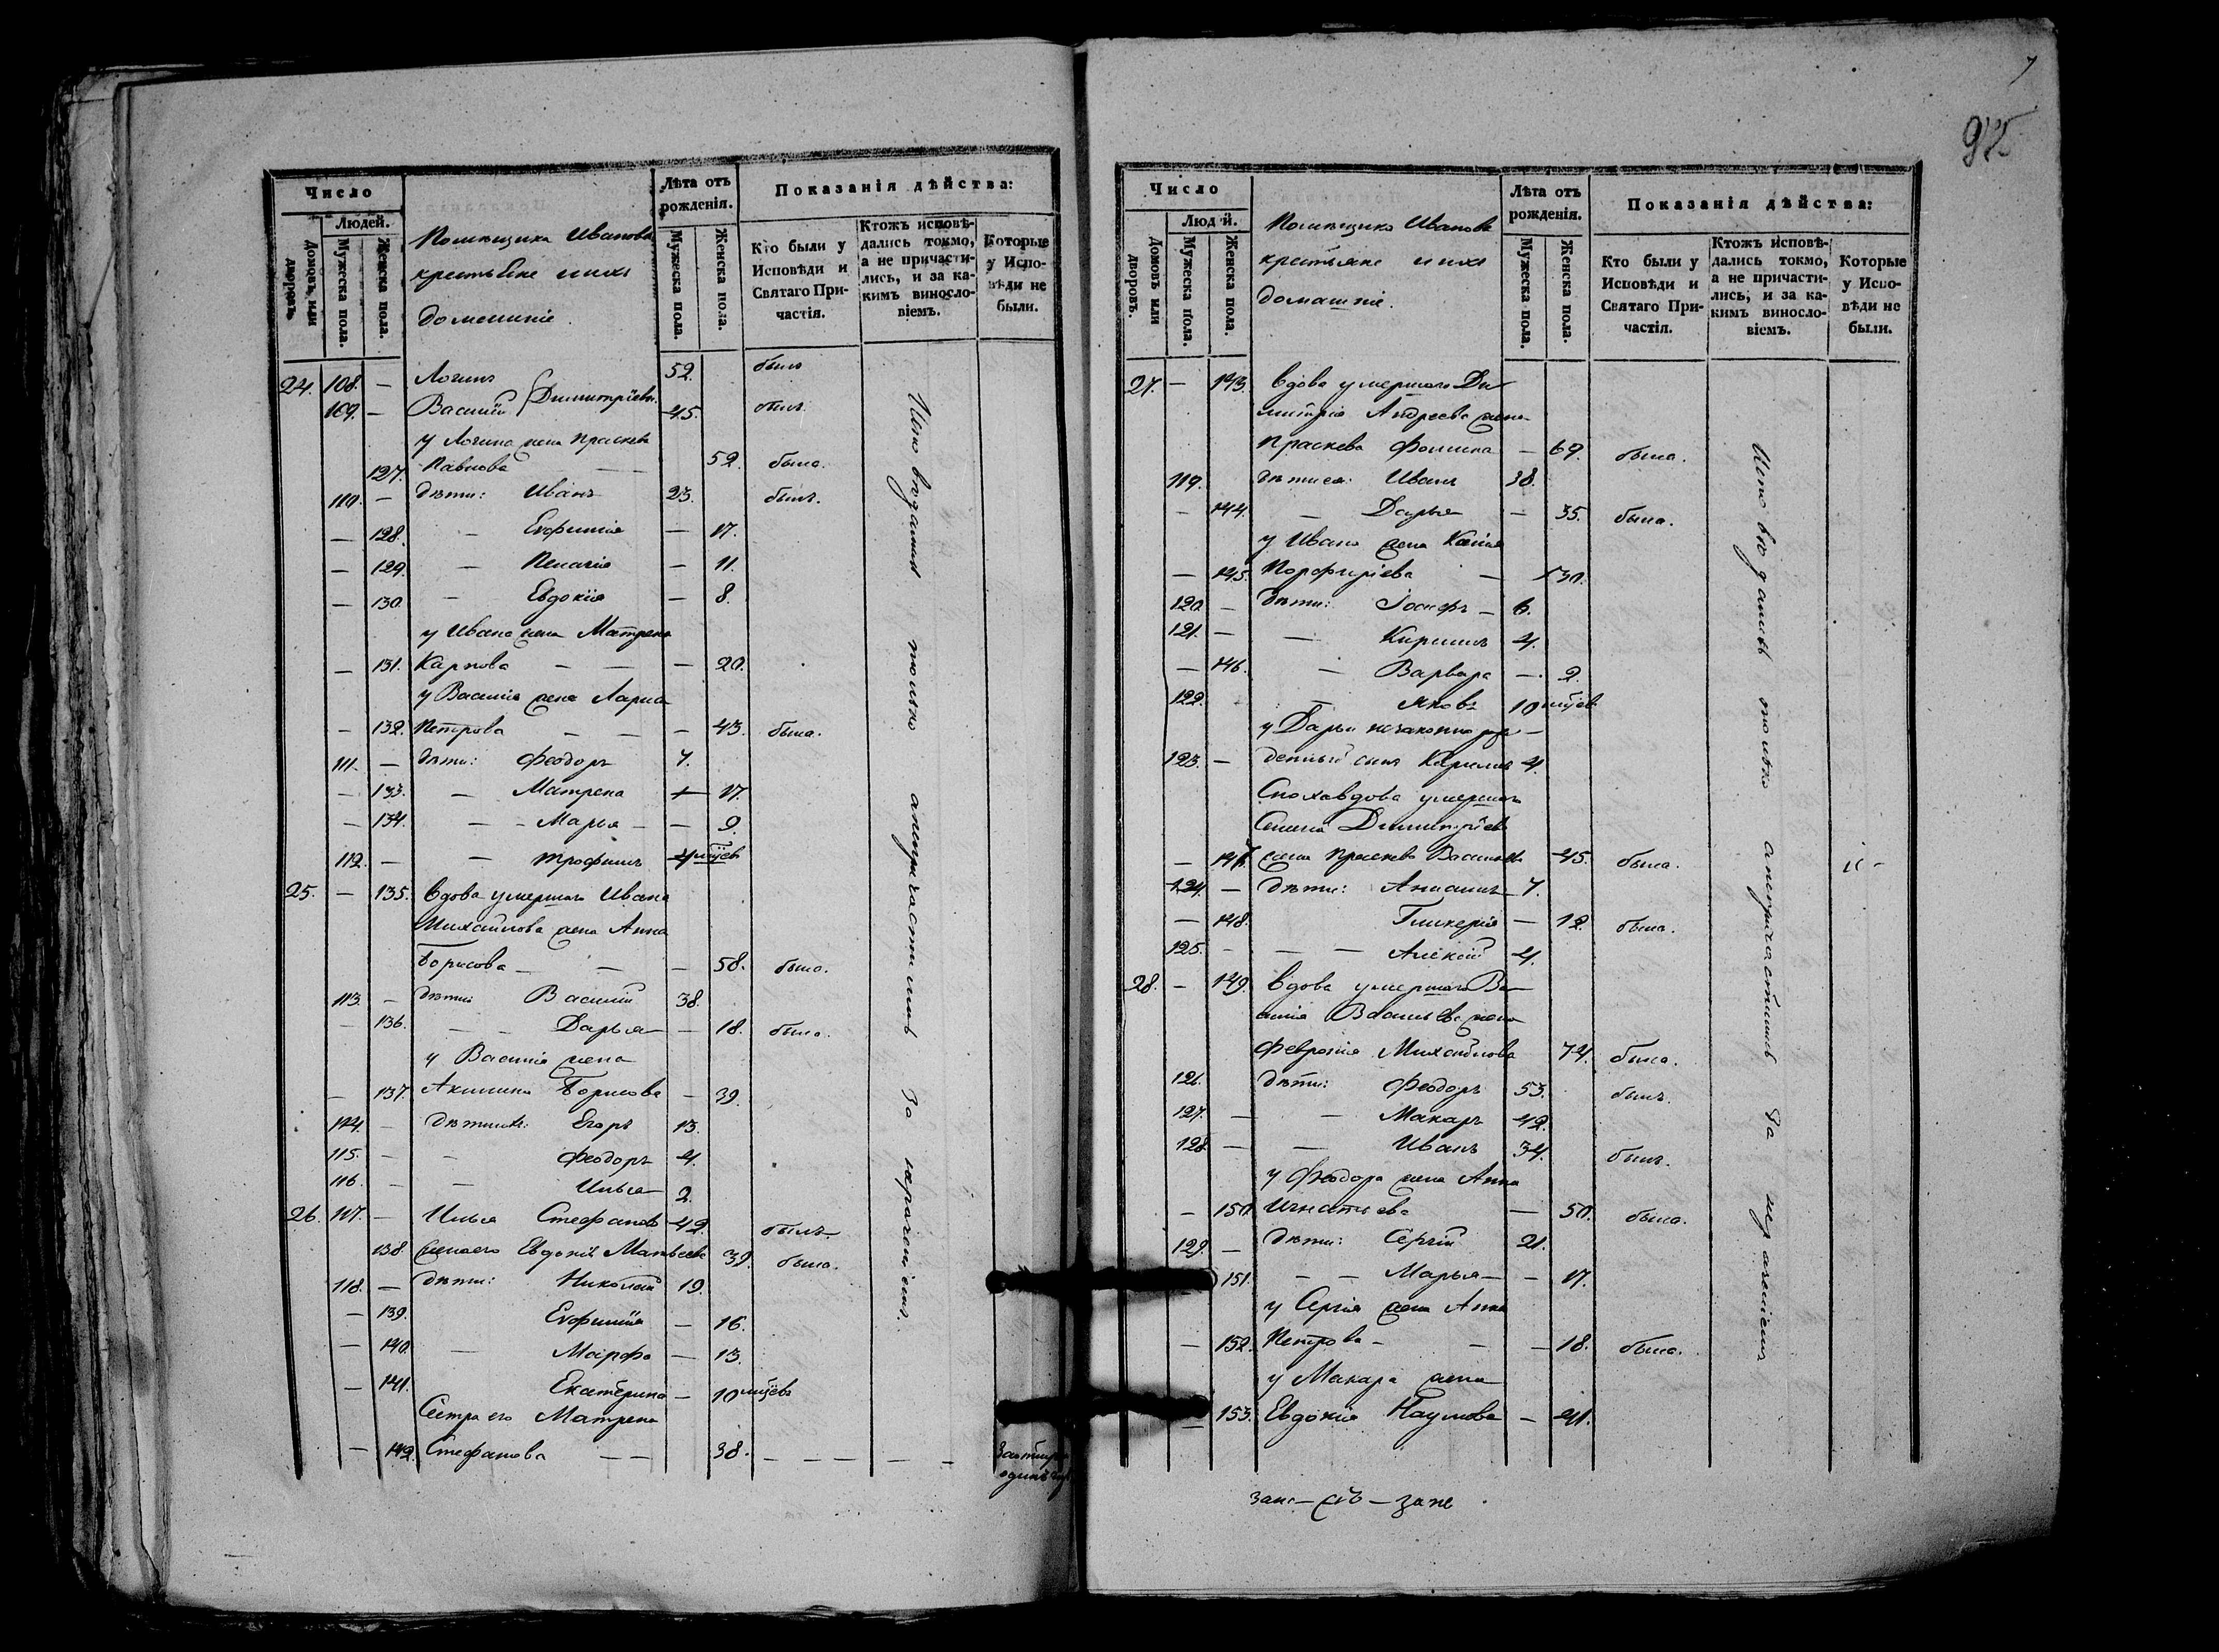 Число
Людей.
Домовъ, или дворовъ.
Мужеска пола.
Женска пола.
Помѣщика Иванова
крестьяне и ихъ
домашніе.
Лѣта отъ рожденія.
Мужеска пола.
Женска пола.
Показанія дѣйства:
Кто были у Исповѣди и Святаго При-частія.
Ктожъ исповѣ-дались токмо, а не причасти-лись, и за ка-кимъ винослo-віемъ.
Которые у Испо-вѣди не были.
24. 108. — Логинъ 52. былъ
109. — Василій } Димитріевы. 45. былъ.
у Логина жена Праскева
127. Павлова — — 52. была.
110. — дѣти: Иванъ 23. былъ.
— 128. — Евфимія — 17.
— 129. — Пелагія — 11.
— 130. — Евдокія — 8.
у Ивана жена Матрена
— 131. Карпова — — — 20.
у Василія жена
— 132. Петрова — — — 43. была.
111. — дѣти: Феодоръ 7.
— 133. — Матрена — 17.
— 134. — — Марья — — 9.
112. — — Трофимъ 4 мѣсъ
25. — 135. Вдова умершаго Ивана
Михайлова жена Анна
Борисова — — — 58. была.
113. — дѣти: Василій 38.
— 136. — — Дарья — — 18. была.
у Василія жена
— 137. Акилина Борисова — 39.
114. — дѣти ихъ: Егоръ 13.
115. — — Феодоръ 4.
116. — — Илья — 2.
26. 117. — Илья Стефановъ 42. былъ
138. жена его Евдокія Матвеева 39. была.
118. — дѣти: Николай 19.
— 139. Евфимія — 16.
— 140. — Марфа — 13.
— 141. Екатерина — 10 мѣсевъ
Сестра его Матрена
— 142. Стефанова — — 38. — — — — —
Исповѣдались только а непричастились За
Число
Людей.
Домовъ или дворовъ.
Мужеска пола.
Женска пола.
Помѣщика Иванова
крестьяне и ихъ
домашніе.
Лѣта отъ рожденія.
Мужеска пола.
Женска пола.
Показанія дѣйства:
Кто были у Исповѣди и Святаго При-частія.
Ктожъ исповѣ-дались токмо, а не причасти-лись, и за ка-кимъ винослo-віемъ.
Которые у Испо-вѣди не были.
27. — 143. Вдова умершаго Ди-
митрія Андреева жена
Праскева Фомина — 69. была.
119. дѣти ея: Иванъ 38.
— 144. — Дарья — 35. была.
у Ивана жена
— 145. Порфиріева — 30.
120. — дѣти: Іосифъ — 6.
121. — — Кирилъ 4.
— 146. — Варвара — 2.
122. — Яковъ 10 мѣсев
у Дарьи незаконно рож-
123. — денный сынъ 4.
Сноха вдова умершаго
Димитріева
— 147. жена Праскева Васильева 45. была.
124. — дѣти: 7.
— 148. Гликерія — 12. была.
125. — — — Алексій 4.
28. — 149. Вдова умершаго Ва-
силія Васильева жена
Февронія Михайлова 74. была.
126. дѣти: Феодоръ 53. былъ.
127. — — Макаръ 42.
128. — — Иванъ 34. былъ.
у Феодора жена Анна
— 150. Игнатьева — 50. была.
129. — дѣти: Сергій 21.
151. — — Марья — — 17.
у Сергія жена Анна
— 152. Петрова — — — 18. была.
у Макара жена
— 153. Евдокія Наумова — 41.
Исповѣдались только а непричастились За